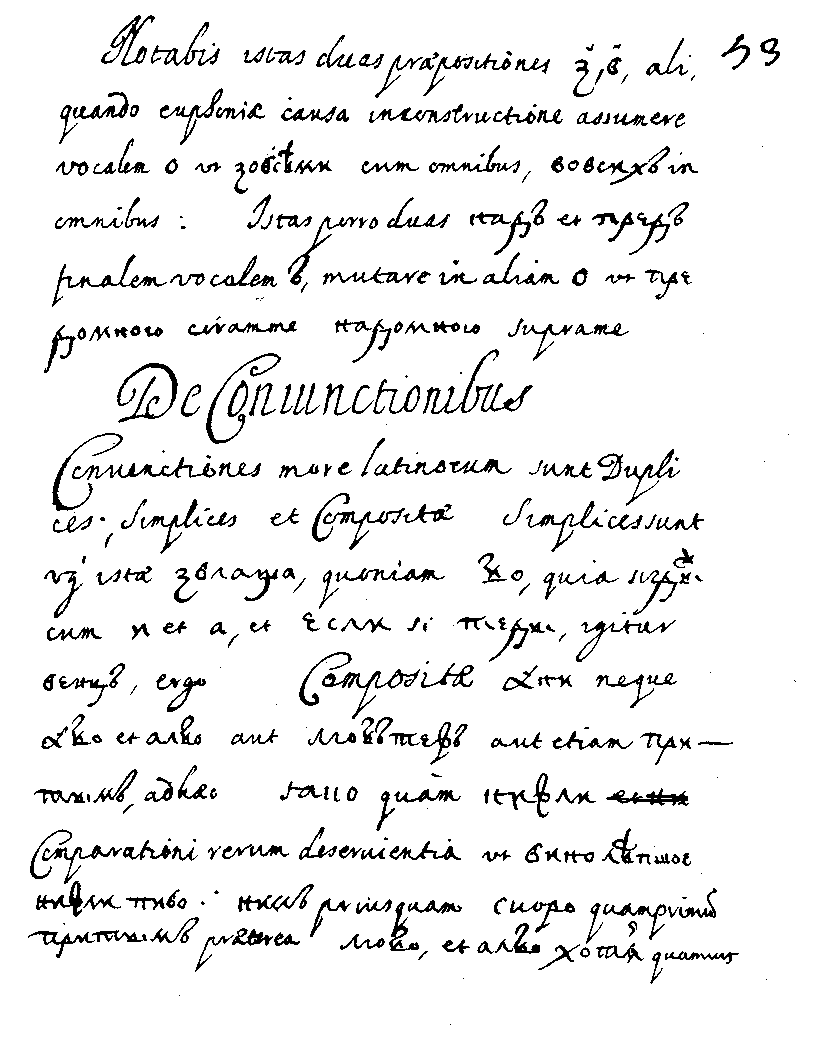 Notabis istas duas præpositiònes з, в, ali, 53
quando euphoniæ causa inconstructione assumere
vocalem o ut зовсѣми cum omnibus, вовсихъ in
omnibus : Istas porro duas надъ et предъ
finalem vocalem ъ, mutare in aliam o ut пре
домною coramme надомною suprame
De Coniunctionibus
Coniunctiònes more latinorum sunt Dupli
ces; Simplices et Compositæ Simplices sunt
istæ звлаща, quoniam бо, quia
cum и et а, et если si igitur
венцъ, ergo Compositæ ани neque
або et албо aut aut etiam при
adhæc quàm нижли
Comparationi rerum deseruientia ut вино лѣпшое
нижли пиво : нижъ priusquam скоро quamprimū
præterea et албо хотяй quamuis